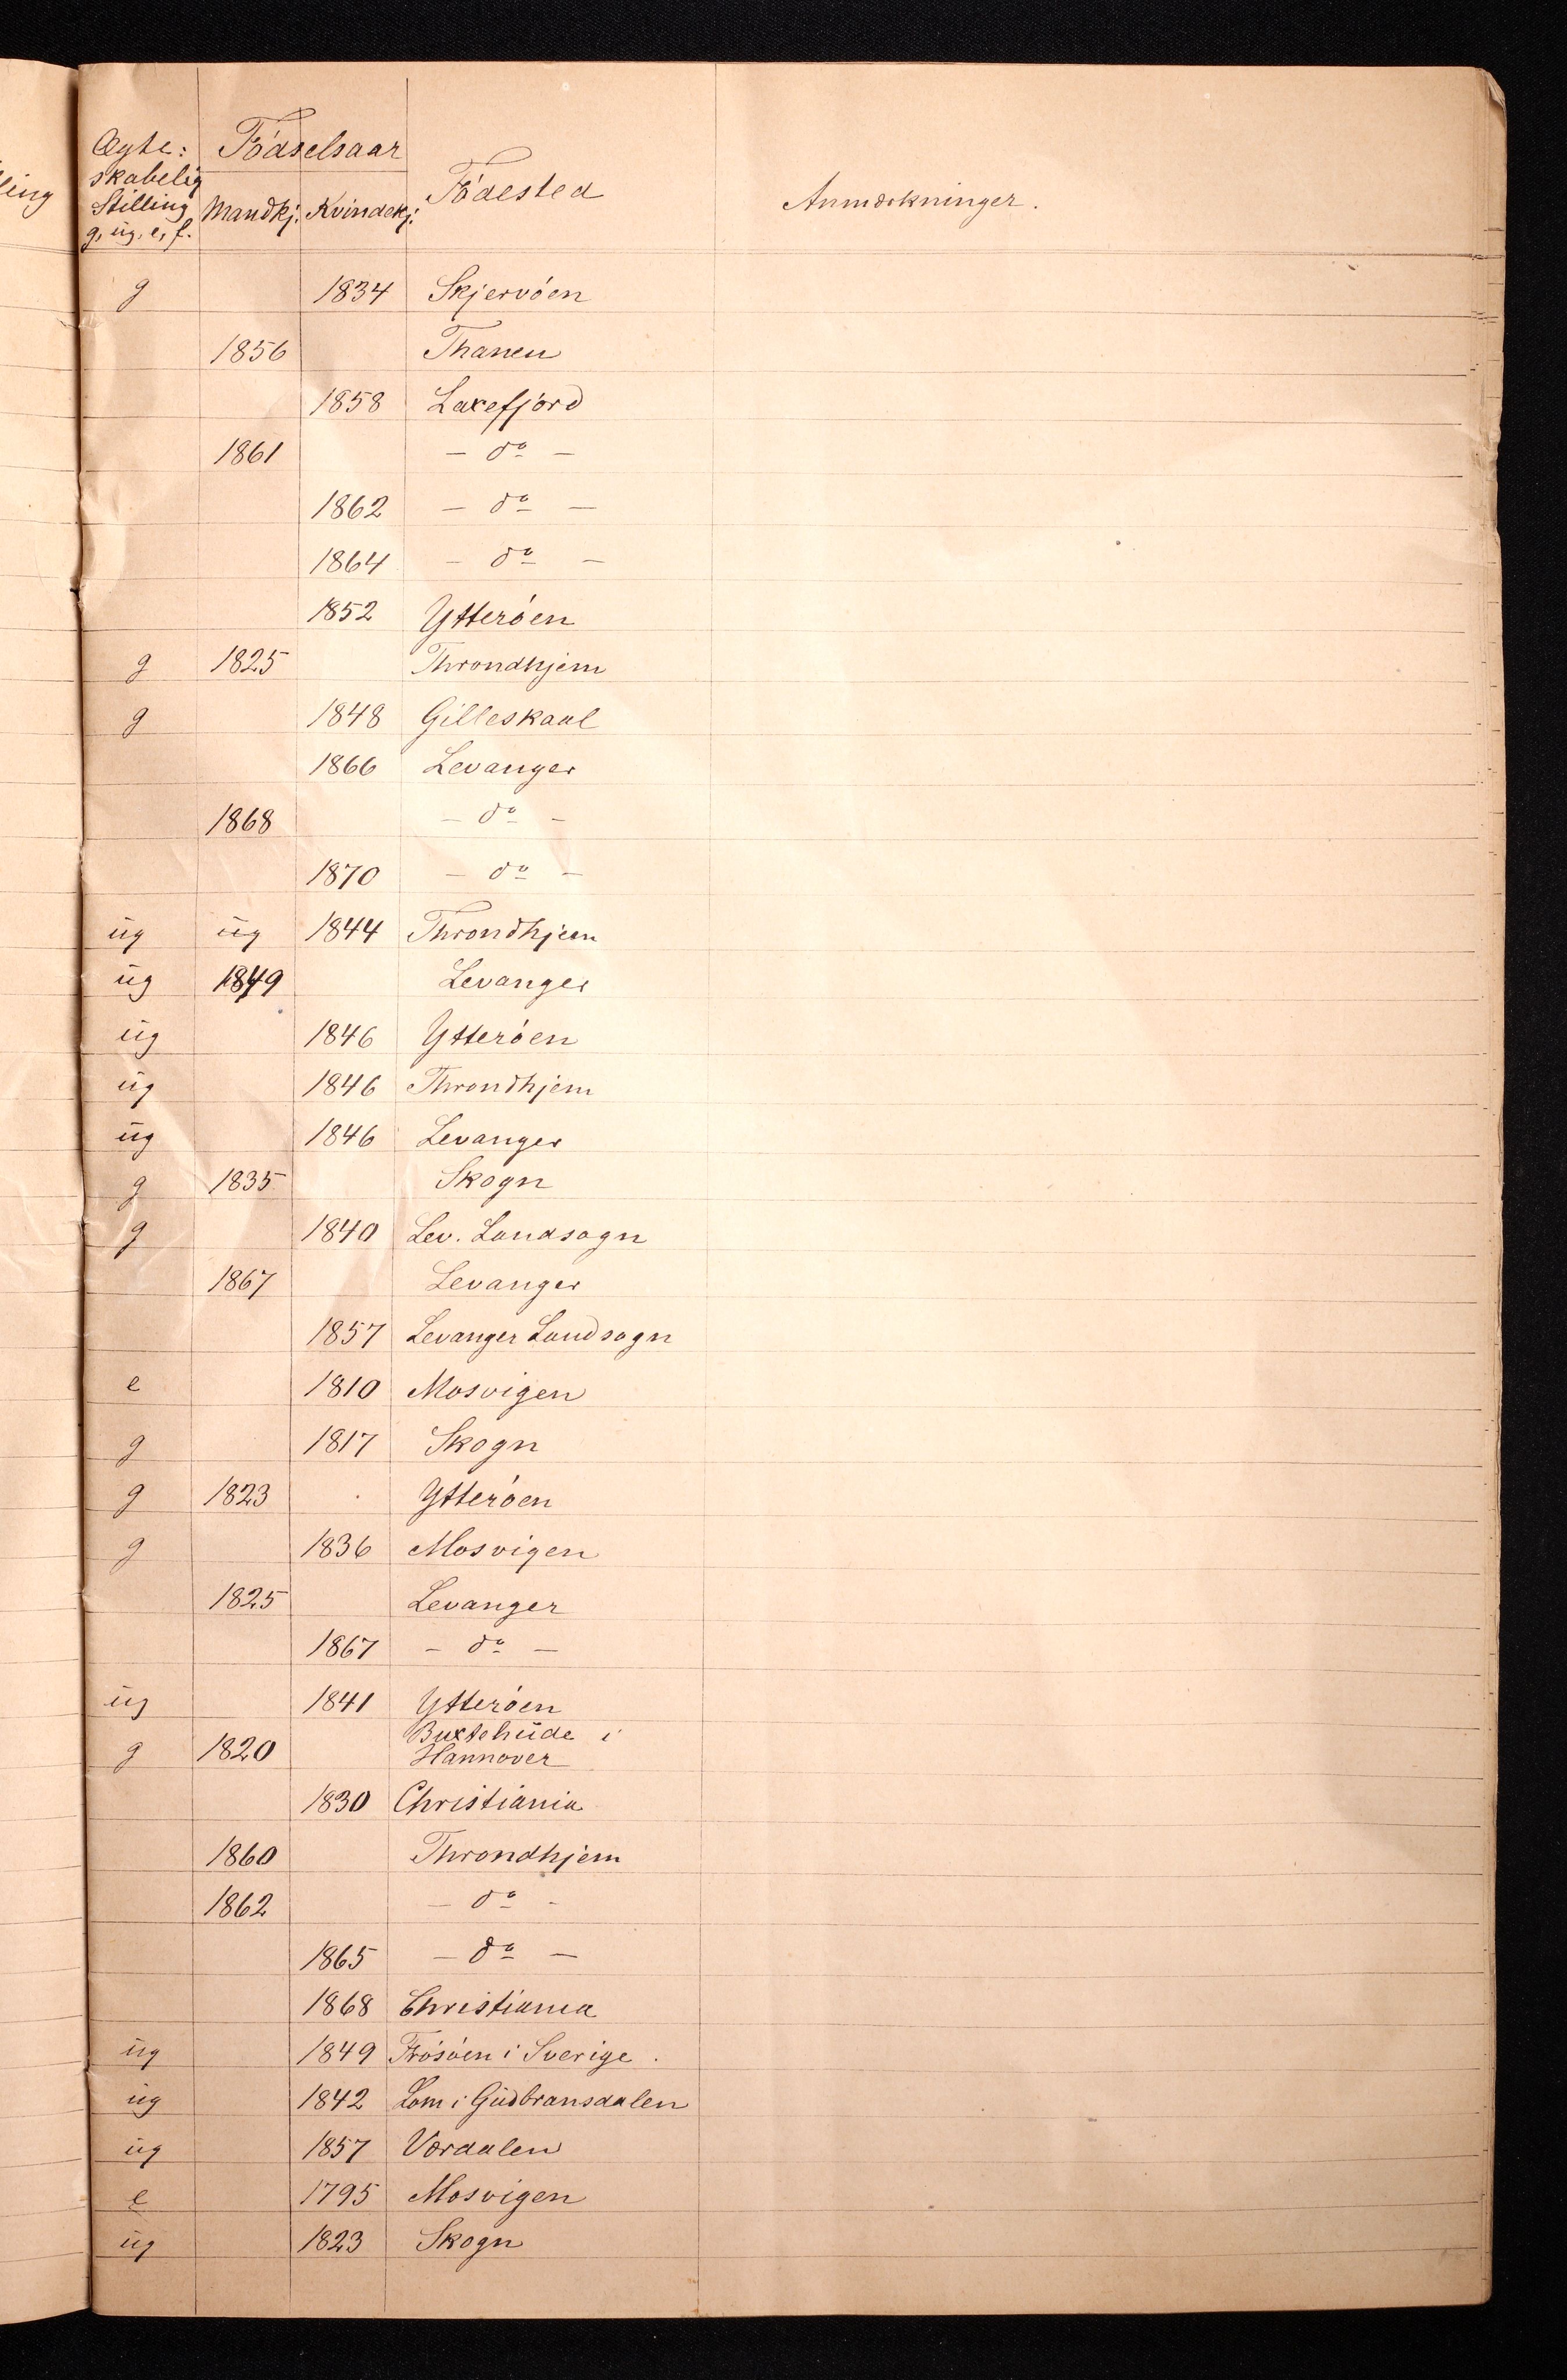 Ægte: Födselsaar
skabelig Födested Anmærkninger.
Stilling Mandkj. Kvindekj:
g, ug, e, f.
g 1834 Skjervöen
1856 Thanen
1858 Laxefjord
1861 - do -
1862 - do -
1864 - do -
1852 Ytteröen
g 1825 Throndhjem
g 1848 Gilleskaal
1866 Levanger
1868 - do -
1870 - do -
ug ug 1844 Throndhjem
ug 1849 Levanger
ug 1846 Ytteröen
ug 1846 Throndhjem
ug 1846 Levanger
g 1835 Skogn
g 1840 Lev. Landsogn
1867 Levanger
1857 Levanger Landsogn
e 1810 Mosvigen
g 1817 Skogn
g 1823 Ytteröen
g 1836 Mosvigen
1825 Levanger
1867 - do -
ug 1841 Ytteröen
g 1820 Buxtehude i
Hannover
1830 Christiania
1860 Throndhjem
1862 - do -
1865 - do -
1868 Christiania
ug 1849 Frösöen i Sverige.
ug 1842 Lom i Gudbransdalen
ug 1857 Værdalen
e 1795 Mosvigen
ug 1823 Skogn